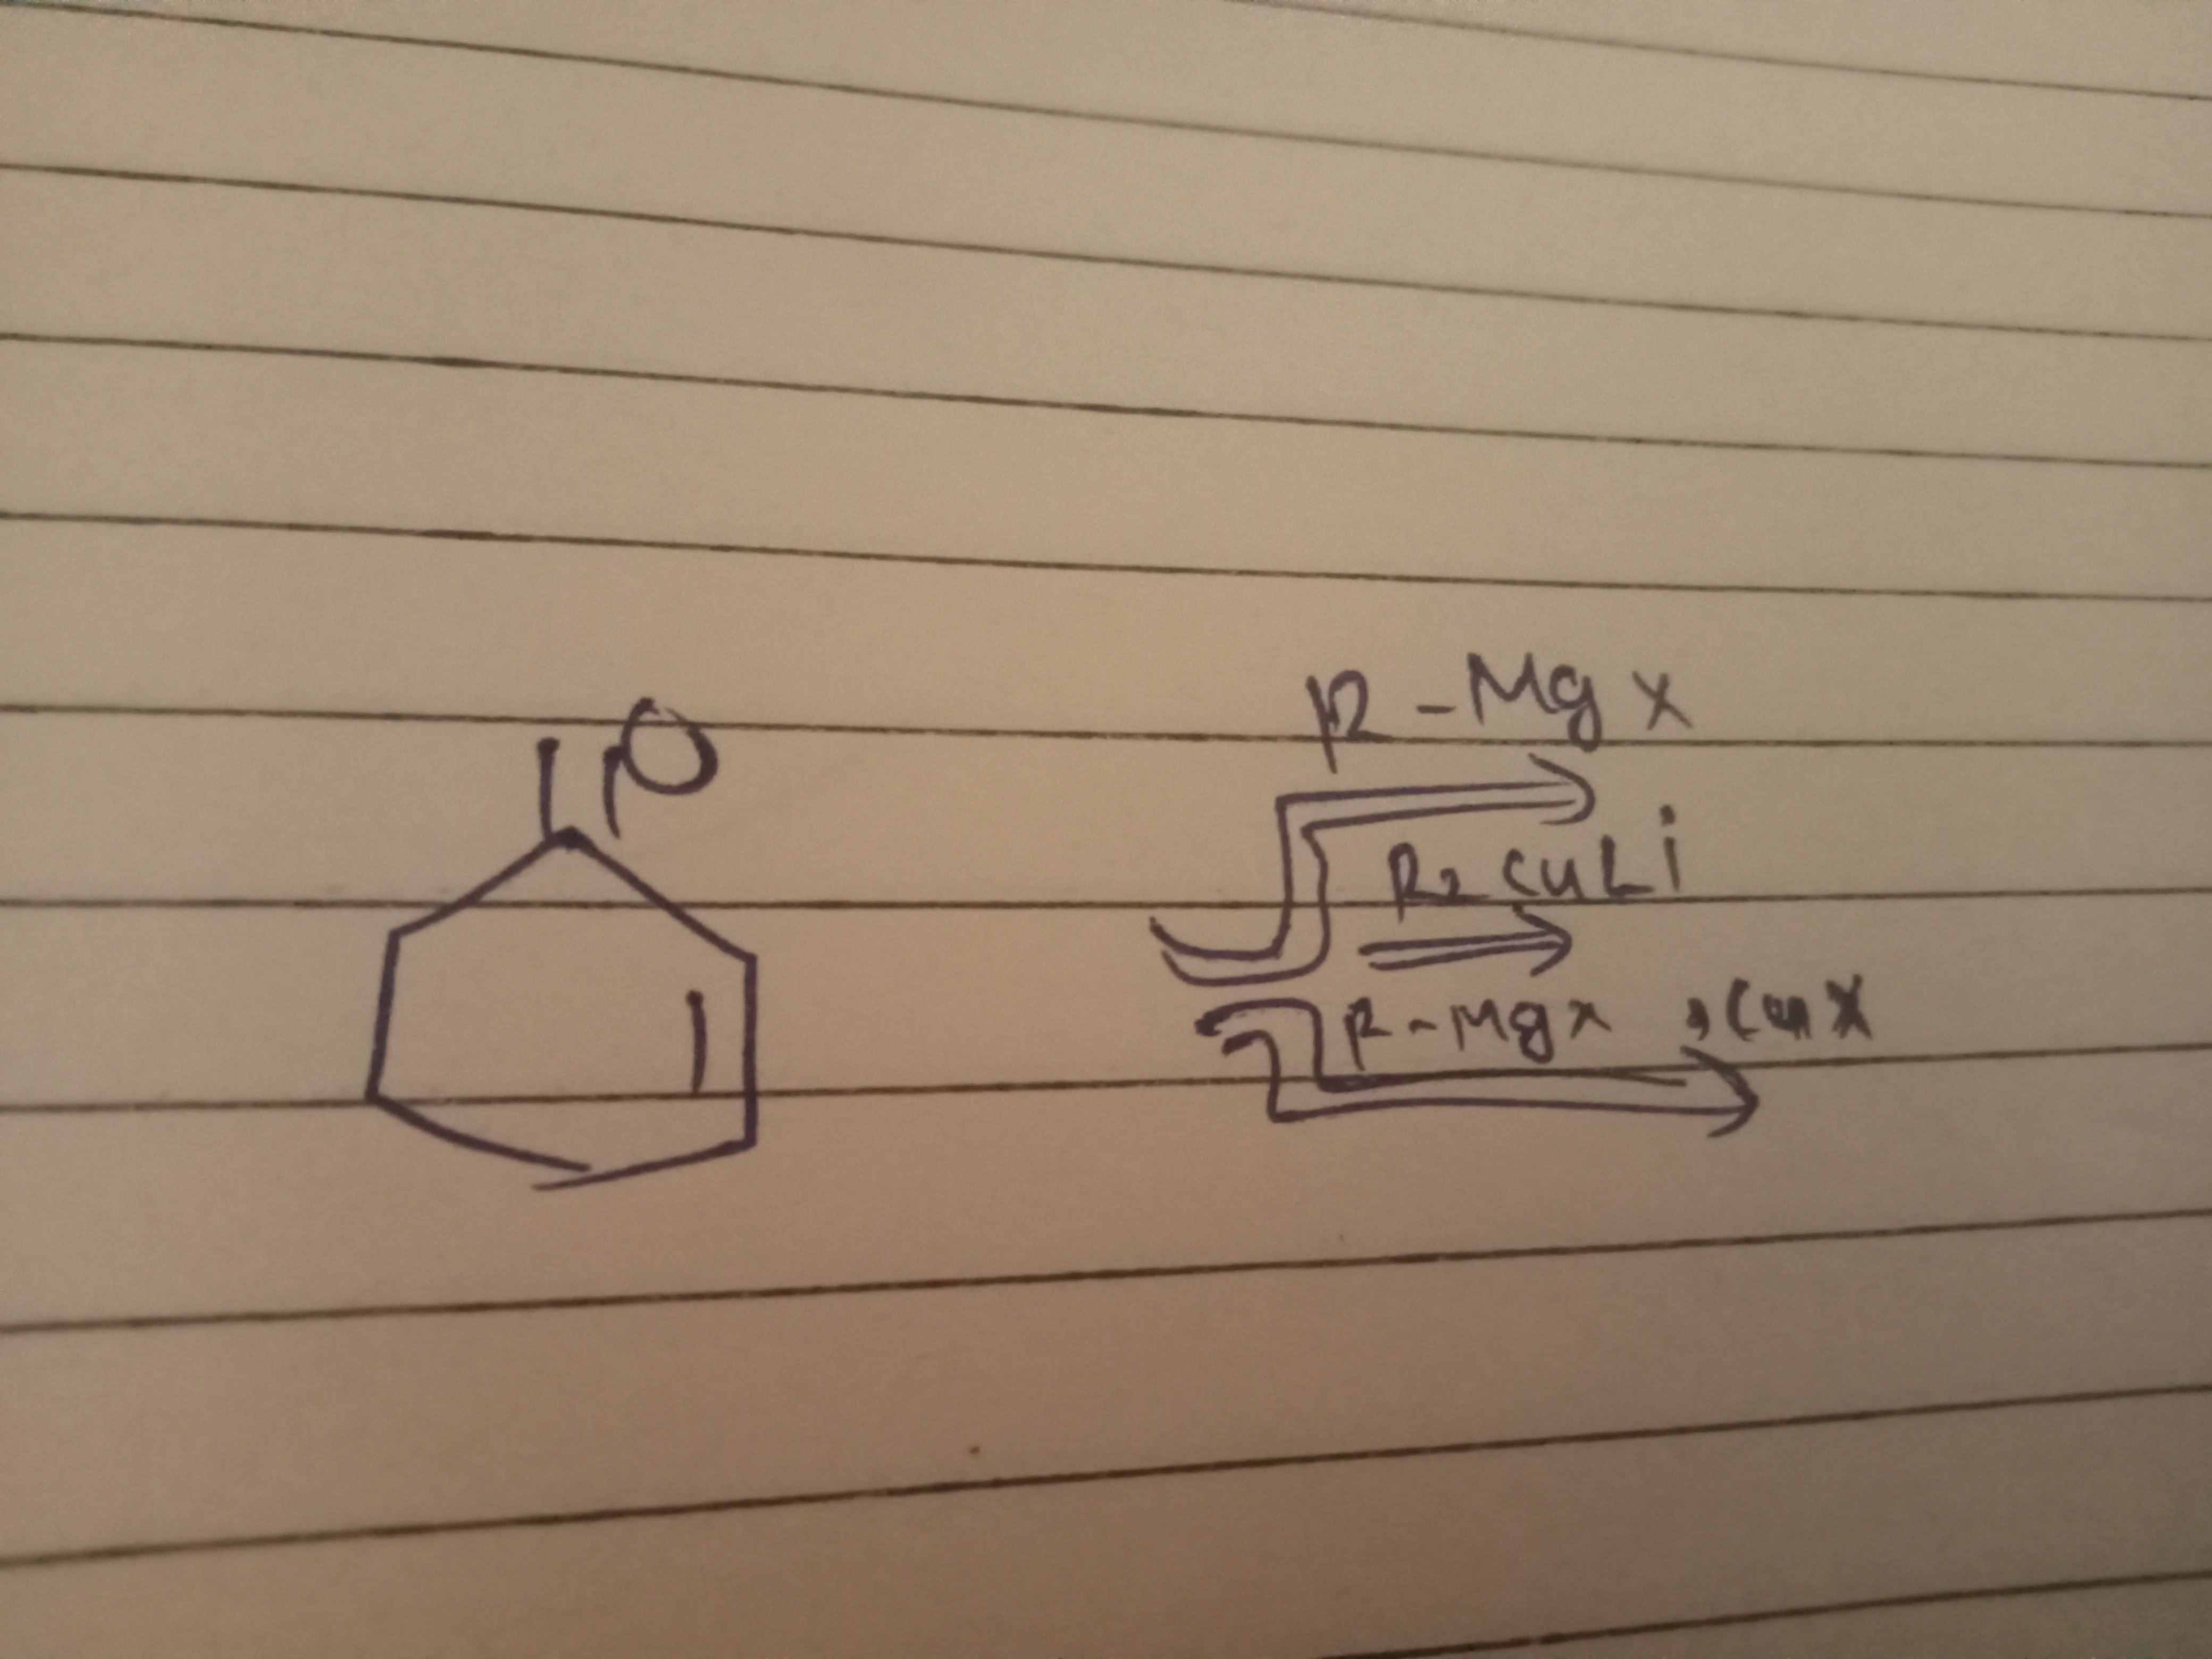 O
R-Mg X
R2 CuLi
R-Mgx , CuX